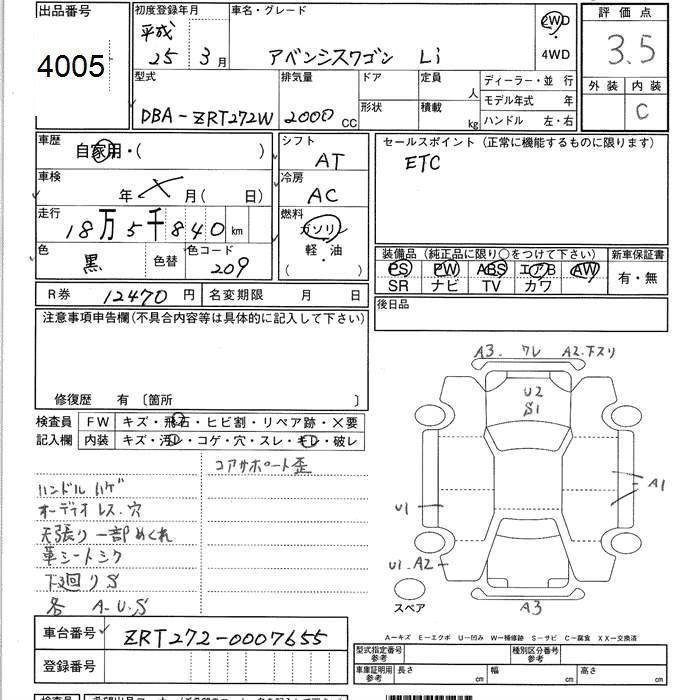 出品番号
4005
初度登録年月
平成
25 3月
車名・グレード
アベンシスワゴン Li
2WD
・
4WD
評価点
3.5
外装 内装
C
型式
DBA-ZRT272W
排気量
2000 CC
ドア
形状
定員
人
積載
kg
ディーラー・並行
モデル年式 年
ハンドル 左・右
車歴
自家用・( )
シフト
AT
セールスポイント (正常に機能するものに限ります)
ETC
車検
年 月( 日)
冷房
AC
走行
18万5千840 km
燃料
ガソリン
軽・油
( )
色
黒
色替
色コード
209
装備品 (純正品に限り○をつけて下さい)
新車保証書
PS PW ABS エアB AW
SR ナビ TV カワ
有・無
R券 12470 円
名変期限 月 日
後日品
注意事項申告欄(不具合内容等は具体的に記入して下さい)
修復歴 有 〔箇所 〕
検査員
記入欄
FW キズ・飛石・ヒビ割・リペア跡・×要
内装 キズ・汚レ・コゲ・穴・スレ・キレ・破レ
コアサポート歪
ハンドルハゲ
オーディオレス・穴
天張り一部めくれ
革シートシワ
下廻りS
各 A・U・S
A3 ワレ A2 下スリ
U2
S1
A1
U1
U1・A2
A3
スペア
A-キズ E-エクボ U-凹み W-補修跡 S-サビ C-腐食 XX-交換済
車台番号 ZRT272-0007655
登録番号
型式指定番号
参考
種別区分番号
参考
車庫証明用
参考
長さ cm 幅 cm 高さ cm